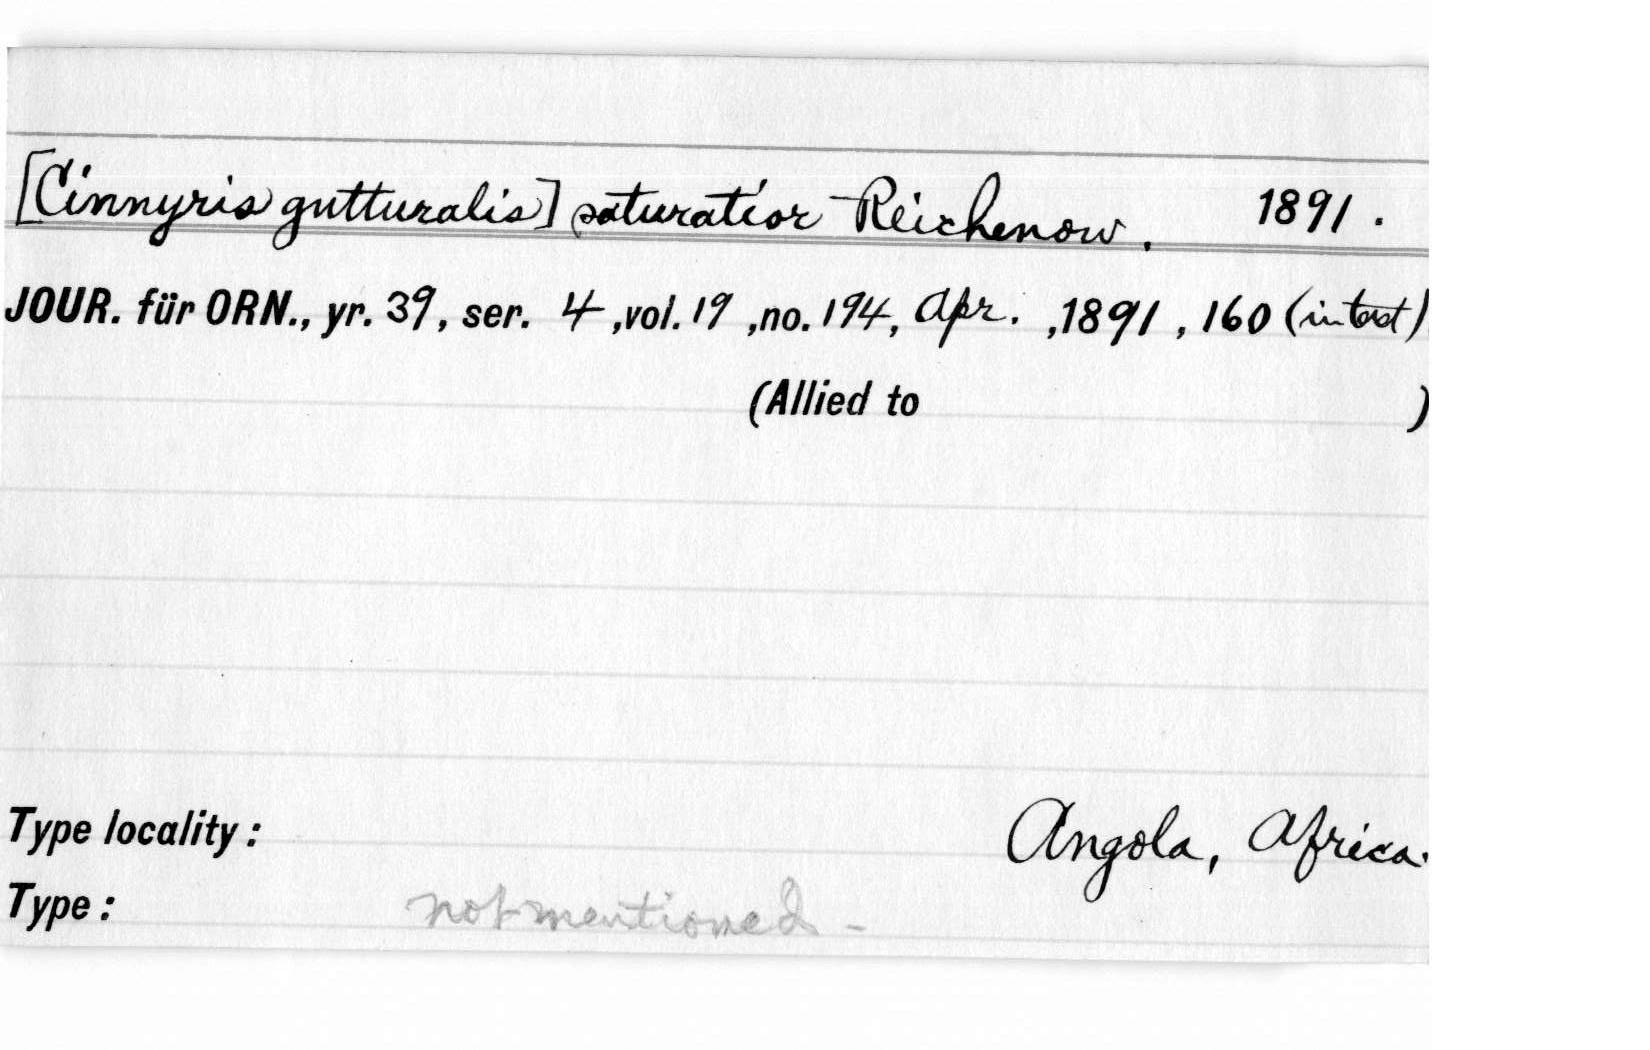 [Cinnyris gutturalis] saturatior Reichenow. 1891.
JOUR. für ORN., yr. 39, ser. 4, vol. 19, no. 194, Apr., 1891, 160 (in text)
(Allied to )
Type locality: Angola, Africa.
Type: not mentioned -